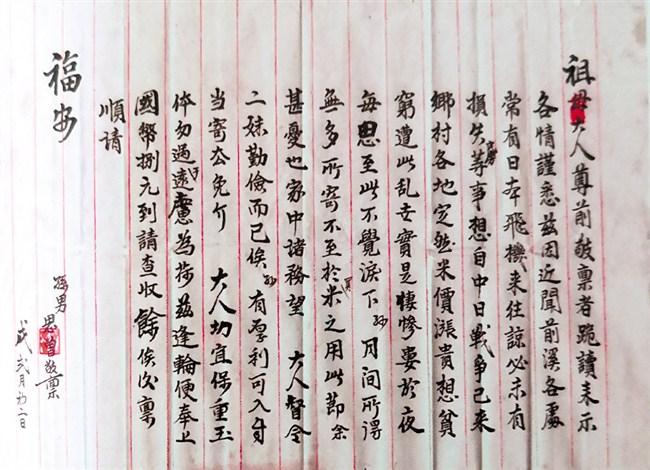 祖母大人尊前敬禀者跪讀来示
各情謹悉兹因近聞前溪各處
常有日本飛機来往諒必亦有
損失等事想自中日戰争已来
鄉村各地定然米價漲貴想貧
窮遭此乱世實是悽慘妻於夜
每思至此不覺淚下孙月間所得
無多所寄不至於米之用此節余
甚憂也家中諸務望 大人督令
二妹勤儉而已俟孙有厚利可入自
当寄去免介 大人切宜保重玉
体勿过遠慮為荷兹逢輪便奉上
國幣捌元到請查收餘俟後禀
順請
福安
孫男 思曾敬禀
弍月廿二日